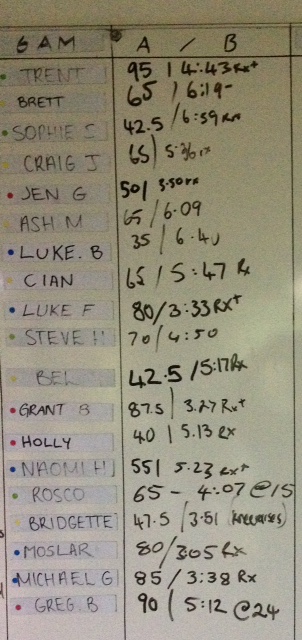 6 AM A / B
TRENT 95 | 4:43 Rx+
BRETT 65 / 6:19-
SOPHIE S 42.5 / 6:59 Rx
CRAIG J 65 | 5:36 rx
JEN G 50 | 3.50 rx
ASH M 65 / 6.09
LUKE. B 35 / 6.40
CIAN 65 / 5:47 Rx
LUKE F 80/3:33 RX+
STEVE H 70/4:50
BEL 42.5 /5:17 Rx
GRANT B 87.5 | 3.27 Rx+
HOLLY 40 | 5.13 Rx
NAOMI H 55 | 5.23 Rx+
ROSCO 65 - 4:07 @15
BRIDGETTE 47.5 /3.51 (kneeraises)
MOSLAR 80/3:05 Rx
MICHAEL G 85 / 3:38 Rx
GREG. B 90 | 5:12 @24